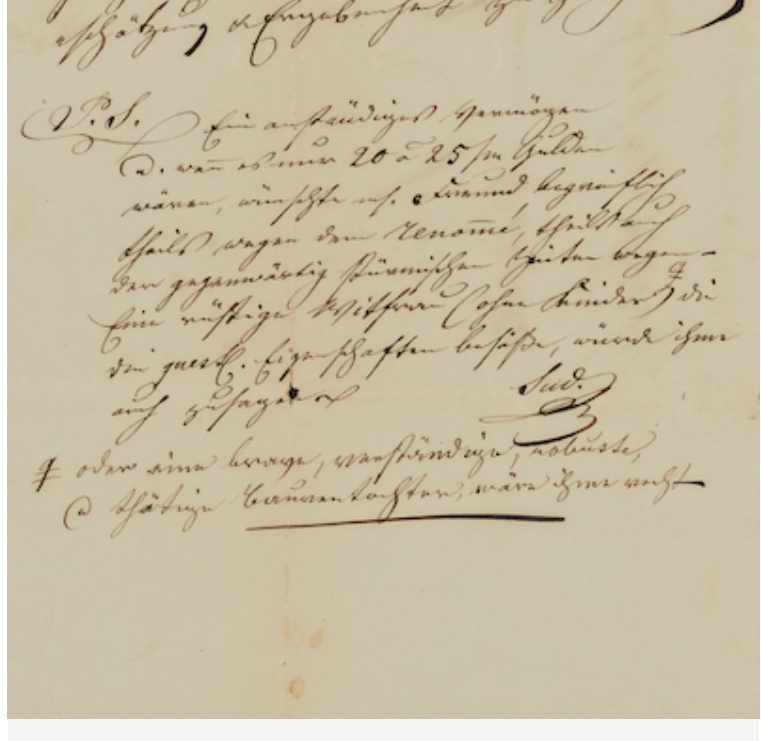 schätzung & Ergebenheit
P. S. Ein anständiges Vermögen
u. weñ es nur 20 à 25/m Gulden
wären, wünschte m. Freund, begreiflich
theils wegen dem Renom̃é, theils auch
der gegenwärtig stürmischen Zeiten wegen –
Eine rüstige Witfrau (ohne Kinder) ‡ die
die quest. Eigenschaften besäße, würde ihme
auch zusagen
Sud.
‡ oder eine brave, verständige, robuste,
u thätige Bauerntochter, wäre ihme recht